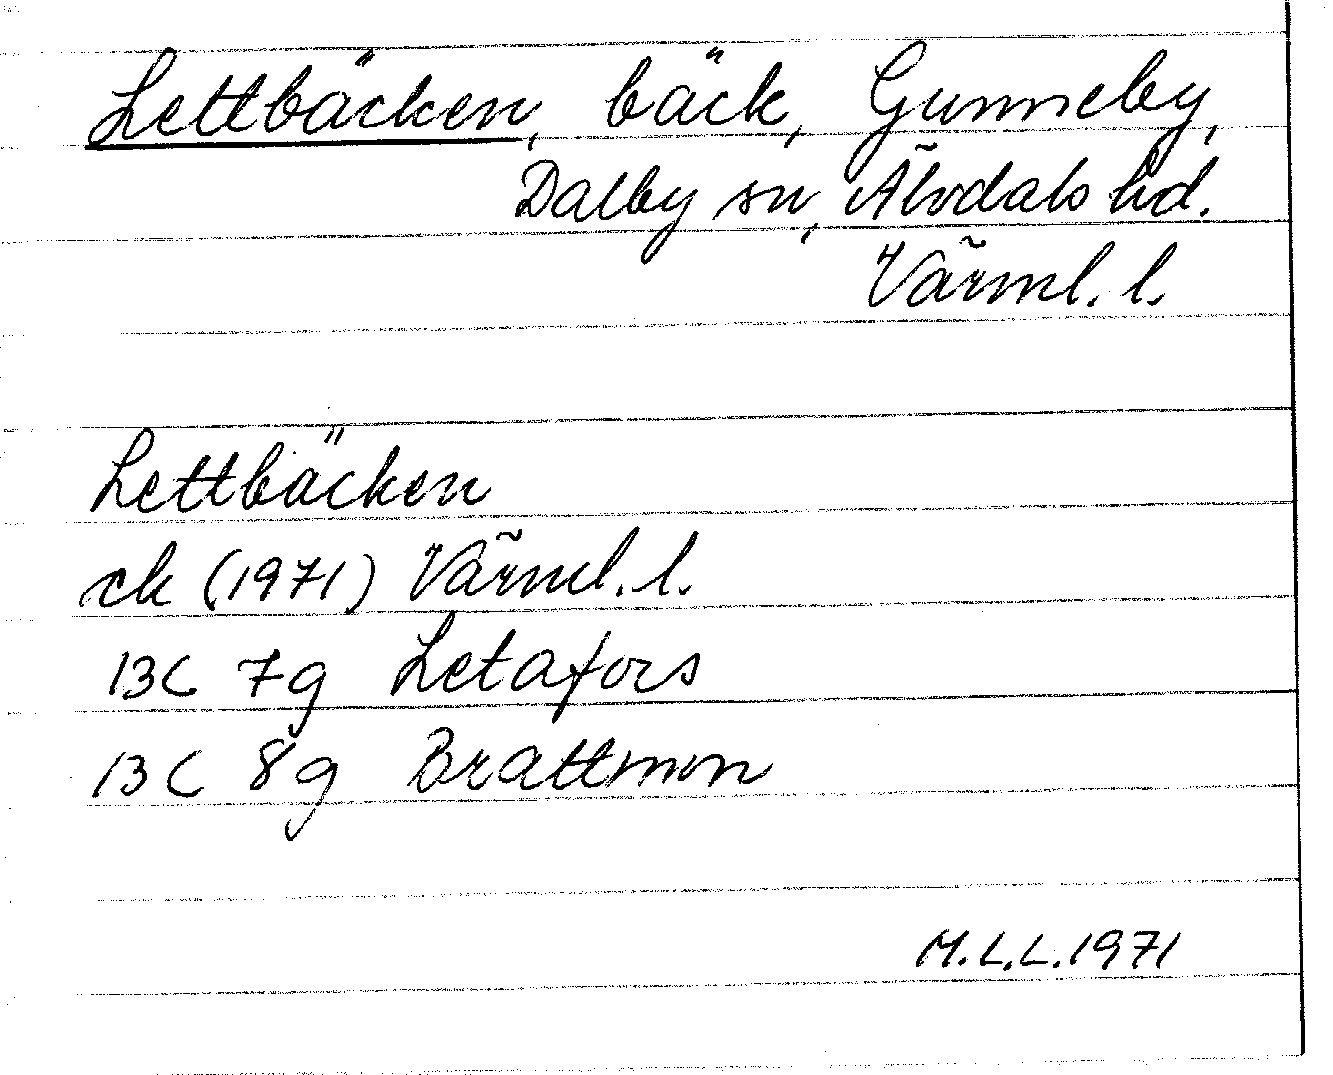 Lettbäcken, bäck, Gunneby,
Dalby sn, Älvdals hd.
Värml. l.
Lettbäcken
ck (1971) Värml. l.
13C 7g Letafors
13C 8g Brattmon
M.L.L. 1971